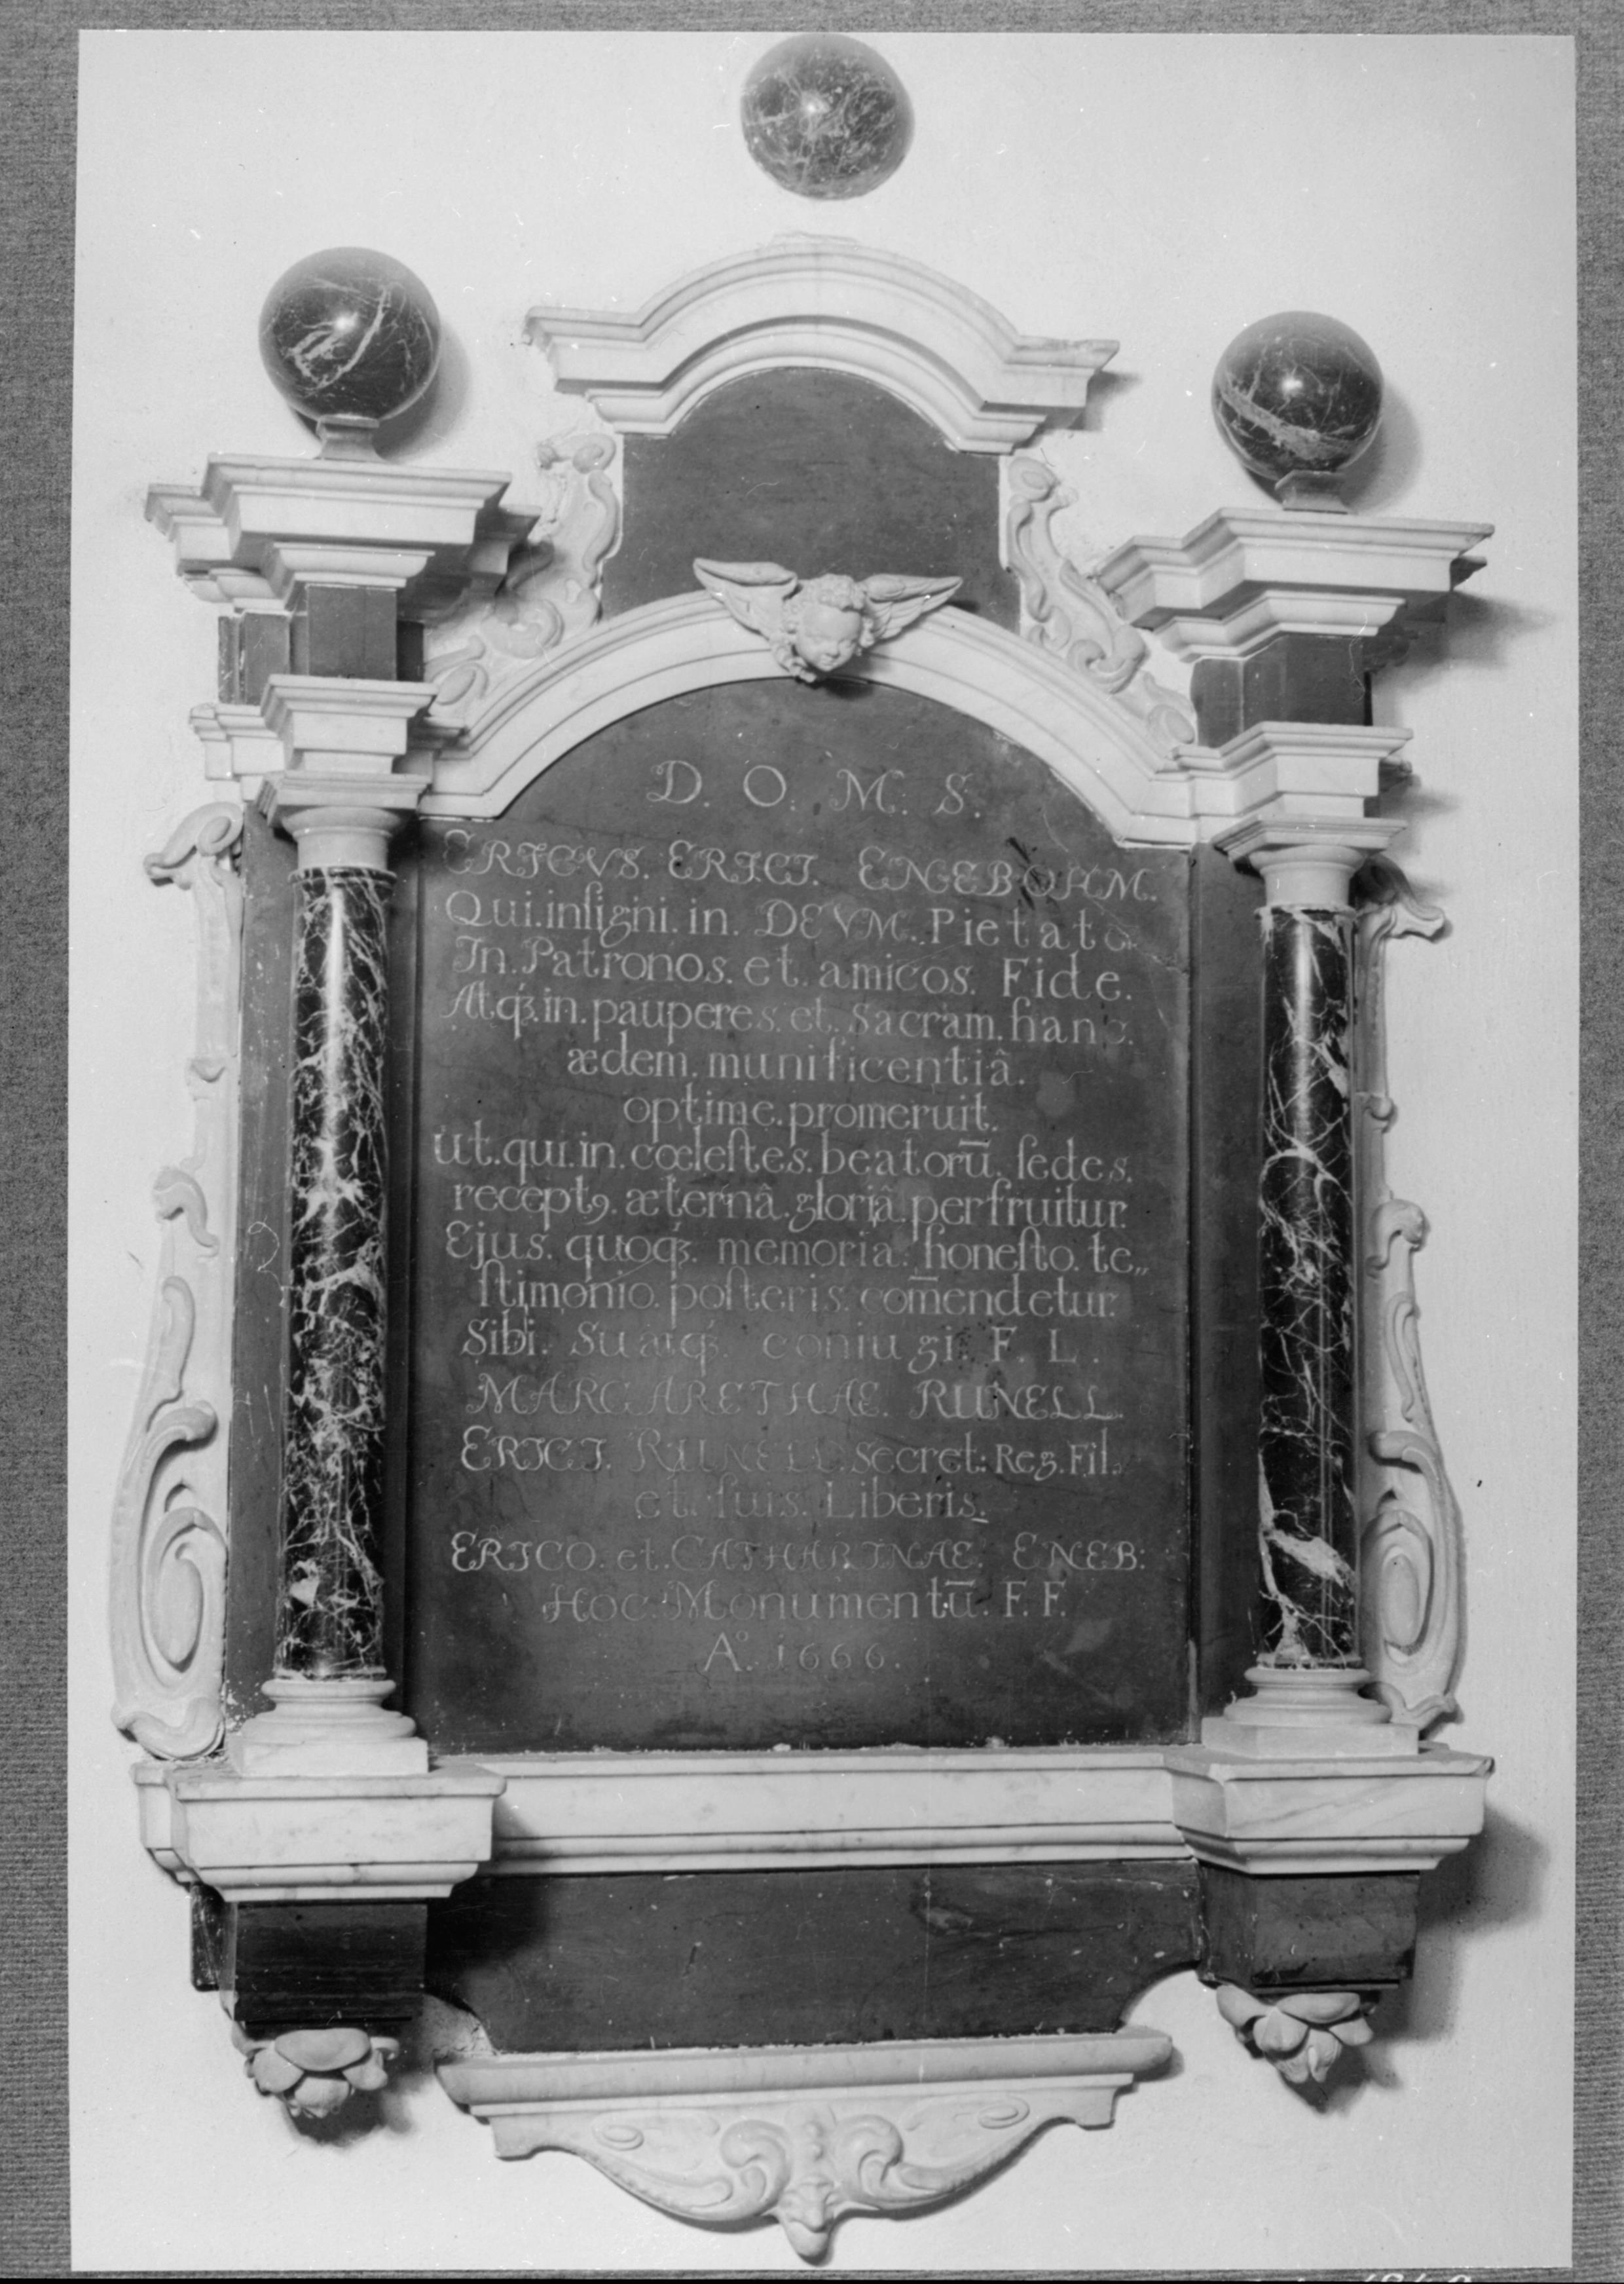 D. O. M. S.
ERICVS. ERICI. ENEBOHM.
Qui. inſigni. in. DEVM. Pietate.
In. Patronos. et. amicos. Fide.
Atq́ꝫ. in. pauperes. et. Sacram. hanc.
ædem. munificentiâ.
optime. promeruit.
Ut. qui. in. cœleſtes. beatorū. ſedes.
receptꝯ. æternâ. gloriâ. perfruitur.
Ejus. quoq́ꝫ. memoria. honeſto. te„
ſtimonio. poſteris. com̄endetur.
Sibi. Suæq́ꝫ. coniugi. F. L.
MARGARETHAE. RUNELL.
ERICI. RUNELL. Secret: Reg. Fil.
et. ſuis. Liberis.
ERICO. et. CATHARINAE. ENEB:
Hoc. Monumentū. F. F.
Aº. 1666.